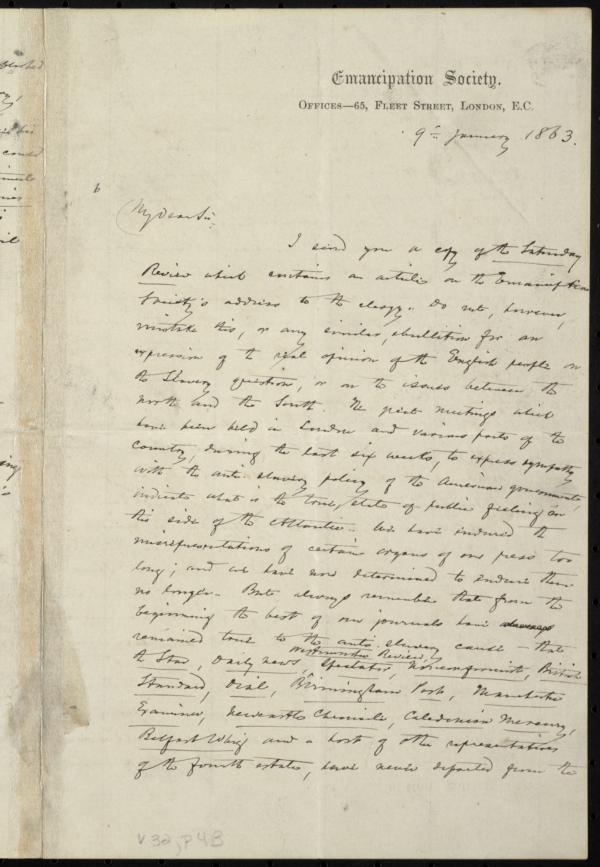 Emancipation Society.
OFFICES—65, FLEET STREET, LONDON, E.C.
9th January 1863.
6
My Dear Sir,
I send you a copy of the Saturday
Review which contains an article on the Emancipation
Society's address to the clergy. Do not, however,
mistake this, or any similar, ebullition for an
expression of the real opinion of the English people on
the Slavery question, or on the issues between the
North and the South. The great meetings which
have been held in London and various parts of the
country, during the last six weeks, to express sympathy
with the anti-slavery policy of the American government,
indicate what is the true state of public feeling on
this side of the Atlantic. We have endured the
misrepresentations of certain organs of our press too
long; and we have now determined to endure them
no longer. But always remember that from the
beginning the best of our journals have always
remained true to the anti-slavery cause – that
Westminster Review,
the Star, Daily News, Spectator, Nonconformist, British
Standard, Dial, Birmingham Post, Manchester
Examiner, Newcastle Chronicle, Caledonian Mercury,
Belfast Whig and a host of other representatives
of the fourth estate, have never departed from the
V32, P4B